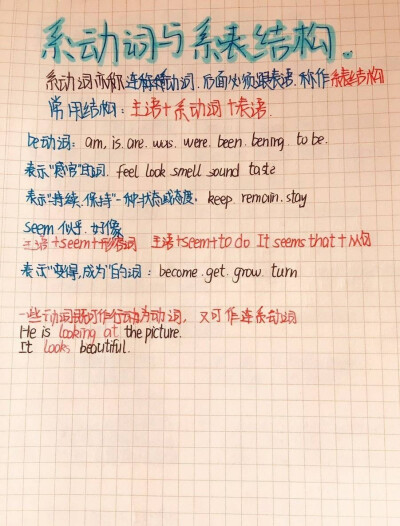 系动词与系表结构.
系动词亦称连系动词.后面必须跟表语.称作系表结构
常用结构:主语+系动词+表语.
be动词: am, is. are. was. were. been. bening. to be.
表示"感官"的词. feel look smell sound taste
表示"持续、保持"一种状态或态度: keep. remain. stay
seem 似乎.好像
主语+seem+形容词 主语+seem+to do It seems that+从句
表示"变得,成为"的词: become. get. grow. turn
一些动词既可作行动为动词, 又可作连系动词
He is looking at the picture.
It looks beautiful.